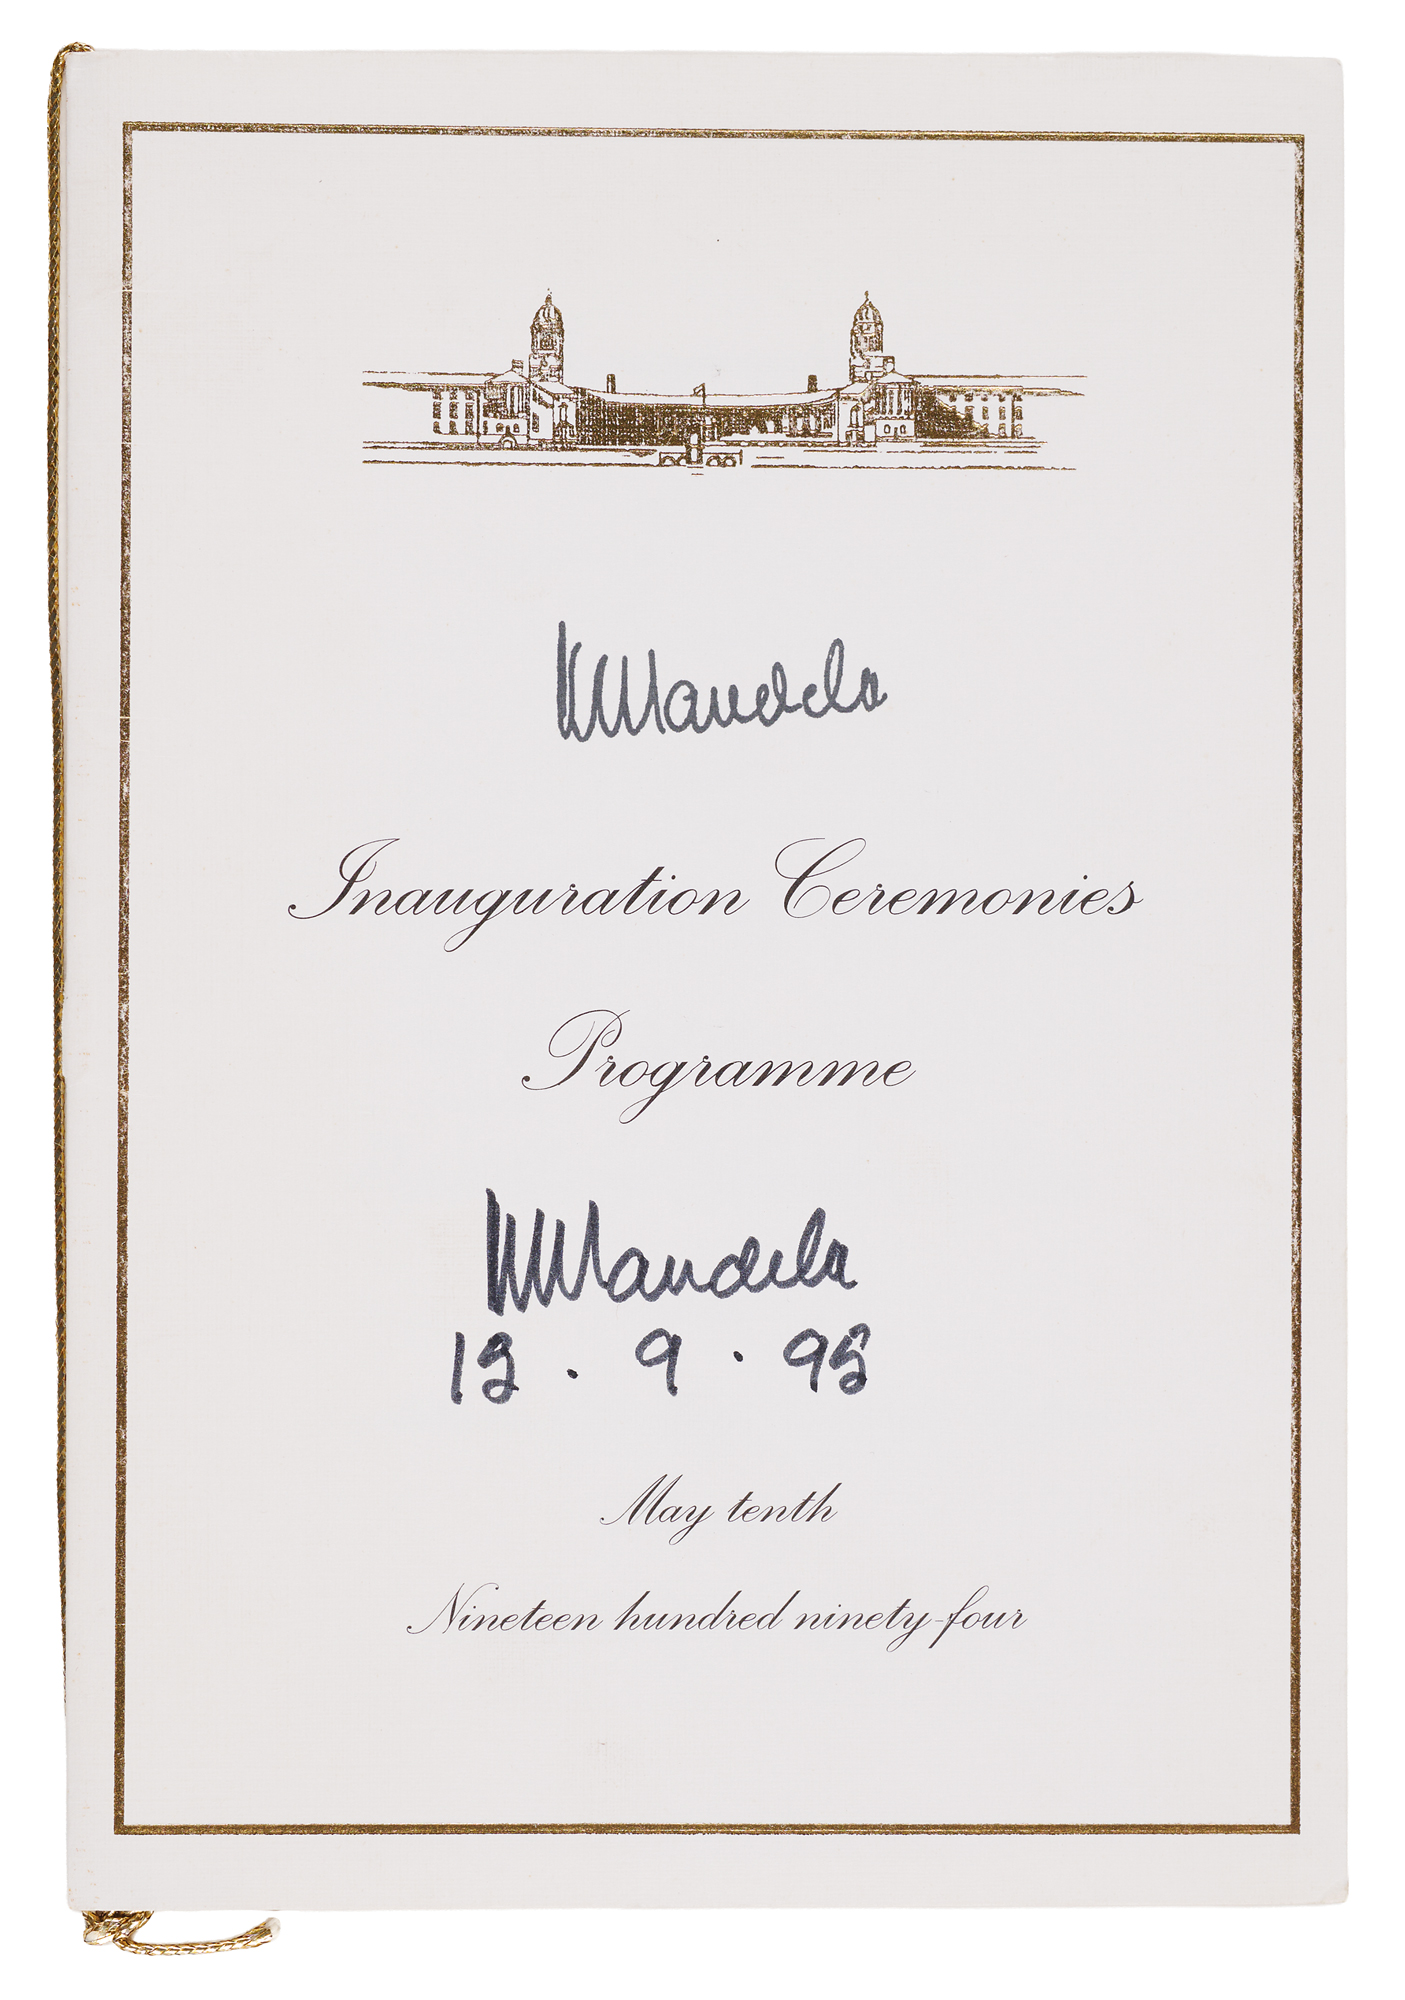 NMandela
Inauguration Ceremonies
Programme
NMandela
. 9 .
May tenth
Nineteen hundred ninety-four